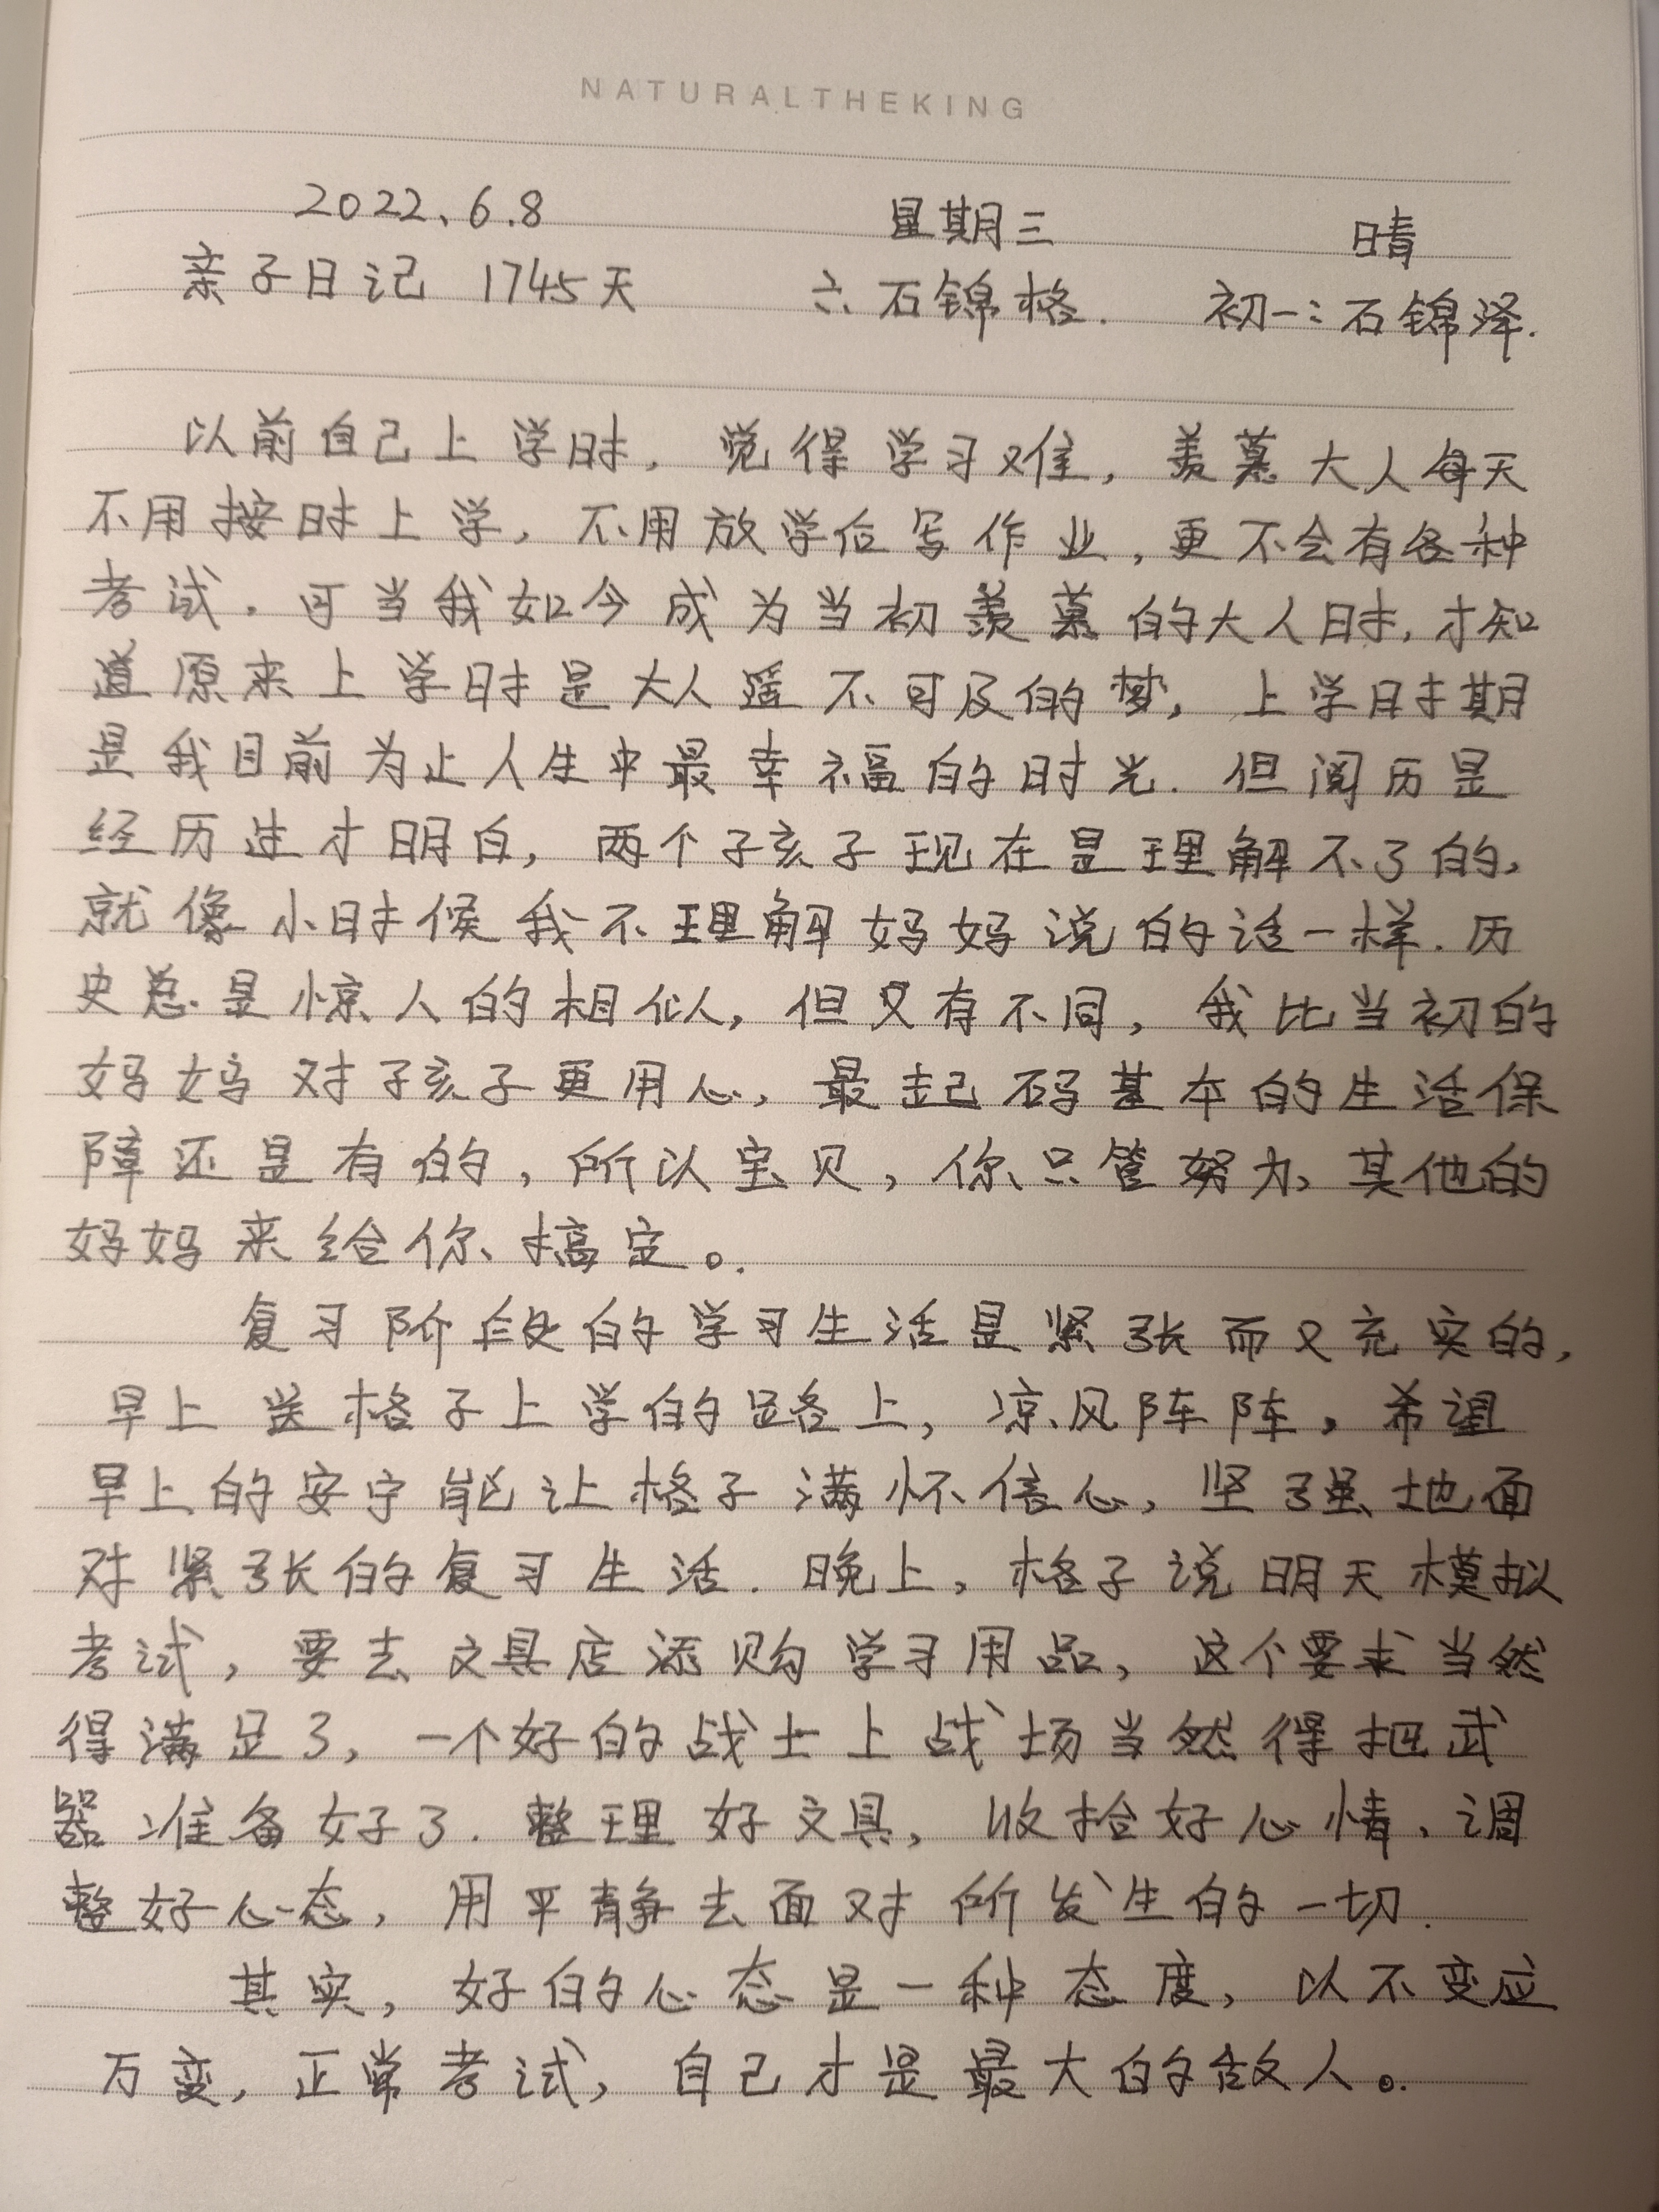 NATURALTHEKING
2022、6.8 星期三 晴
亲子日记 1745天 六:石锦格. 初一:石锦泽.
以前自己上学时,觉得学习难,羡慕大人每天
不用按时上学,不用放学后写作业,更不会有各种
考试,可当我如今成为当初羡慕的大人时,才知
道原来上学时是大人遥不可及的梦,上学时期
是我目前为止人生中最幸福的时光.但阅历是
经历过才明白,两个孩子现在是理解不了的,
就像小时候我不理解妈妈说的话一样.历
史总是惊人的相似,但又有不同,我比当初的
妈妈对孩子更用心,最起码基本的生活保
障还是有的,所以宝贝,你只管努力,其他的
妈妈来给你搞定。
复习阶段的学习生活是紧张而又充实的,
早上送格子上学的路上,凉风阵阵,希望
早上的安宁能让格子满怀信心,坚强地面
对紧张的复习生活.晚上,格子说明天模拟
考试,要去文具店添购学习用品,这个要求当然
得满足了,一个好的战士上战场当然得把武
器准备好了.整理好文具,收拾好心情,调
整好心态,用平静去面对所发生的一切.
其实,好的心态是一种态度,以不变应
万变,正常考试,自己才是最大的敌人。